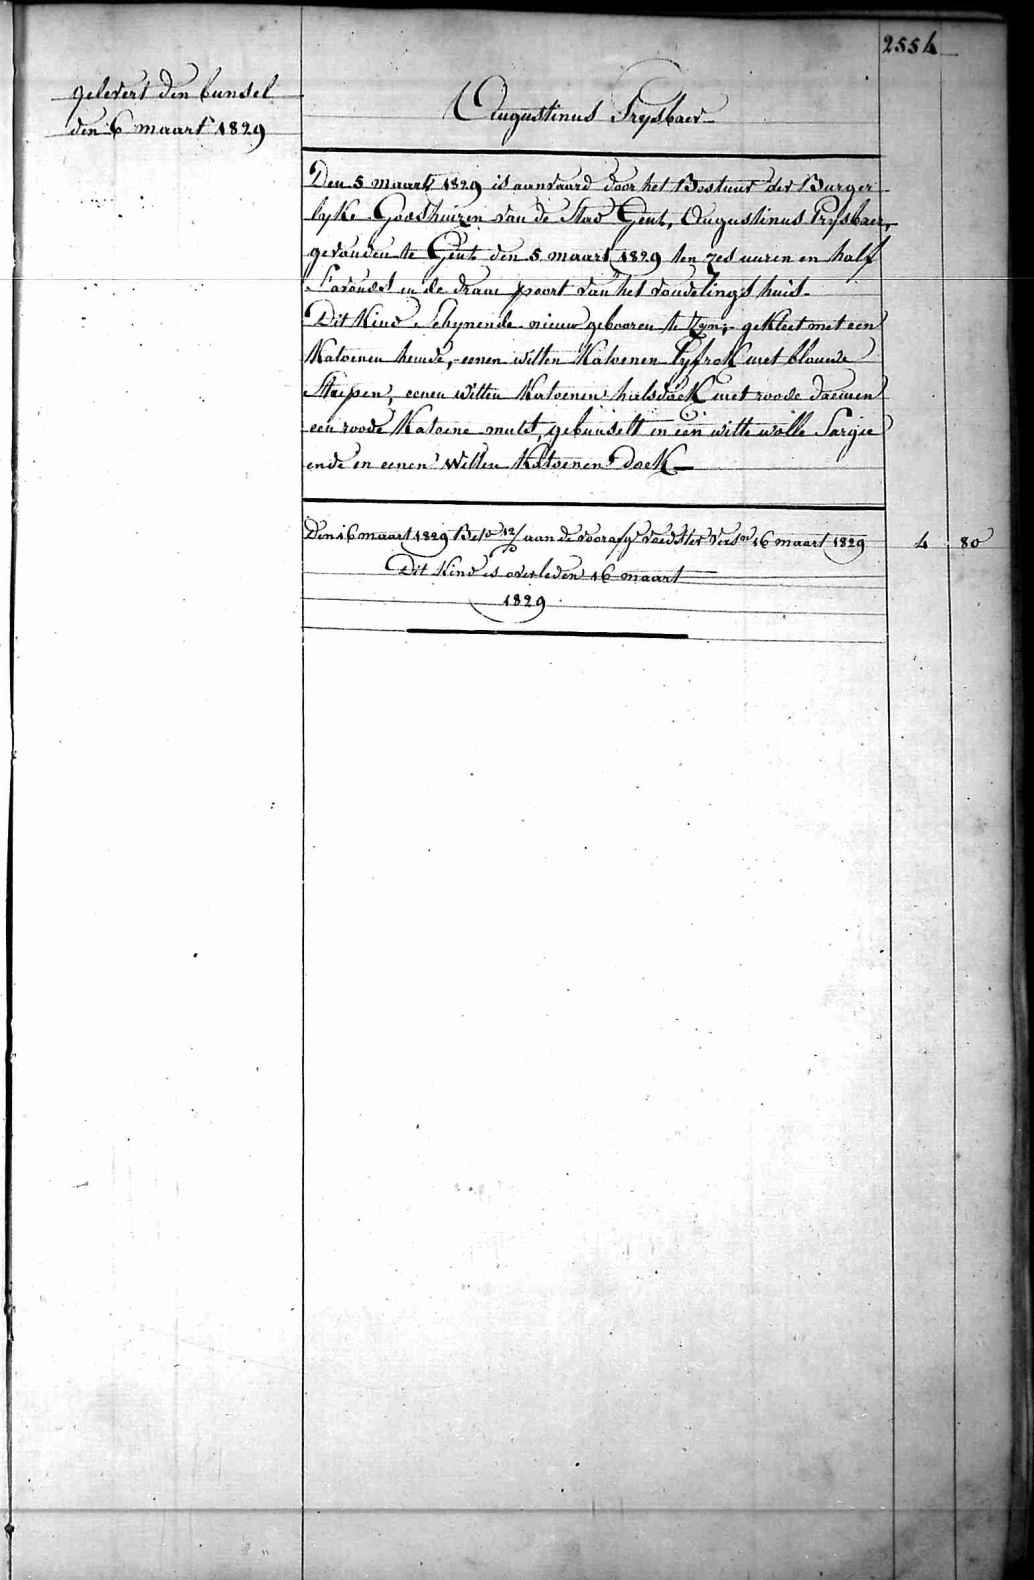 2554
gelevert den bunsel
den 6 maart 1829
Augustinus Prysbaer
Den 5 maart 1829 is aanvaard door het Bestuur der Burger
lyke Godshuizen van de Stad Gent, Augustinus Prysbaer,
gevonden te Gent den 5 maart 1829 ten zes uuren en half
s'avonds in de draai poort van het vondelings huis.
Dit Kind schynende nieuw gebooren te zyn, gekleet met een
Katoenen hemde, eenen witten Katoenen lyfrok met blauwe
Stiepen, eenen witten Katoenen halsdoek met roode
een roode Katoene muts, gebunselt in een witte wolle Sargie
ende in eenen witten Katoenen doek
Den 16 maart 1829 aan de voedster 16 maart 1829 4 80
Dit Kind is overleden 16 maart
1829